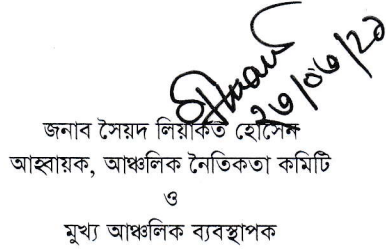 ২৬/০৬/২১
জনাব সৈয়দ লিয়াকত হোসেন
আহ্বায়ক, আঞ্চলিক নৈতিকতা কমিটি
ও
মুখ্য আঞ্চলিক ব্যবস্থাপক